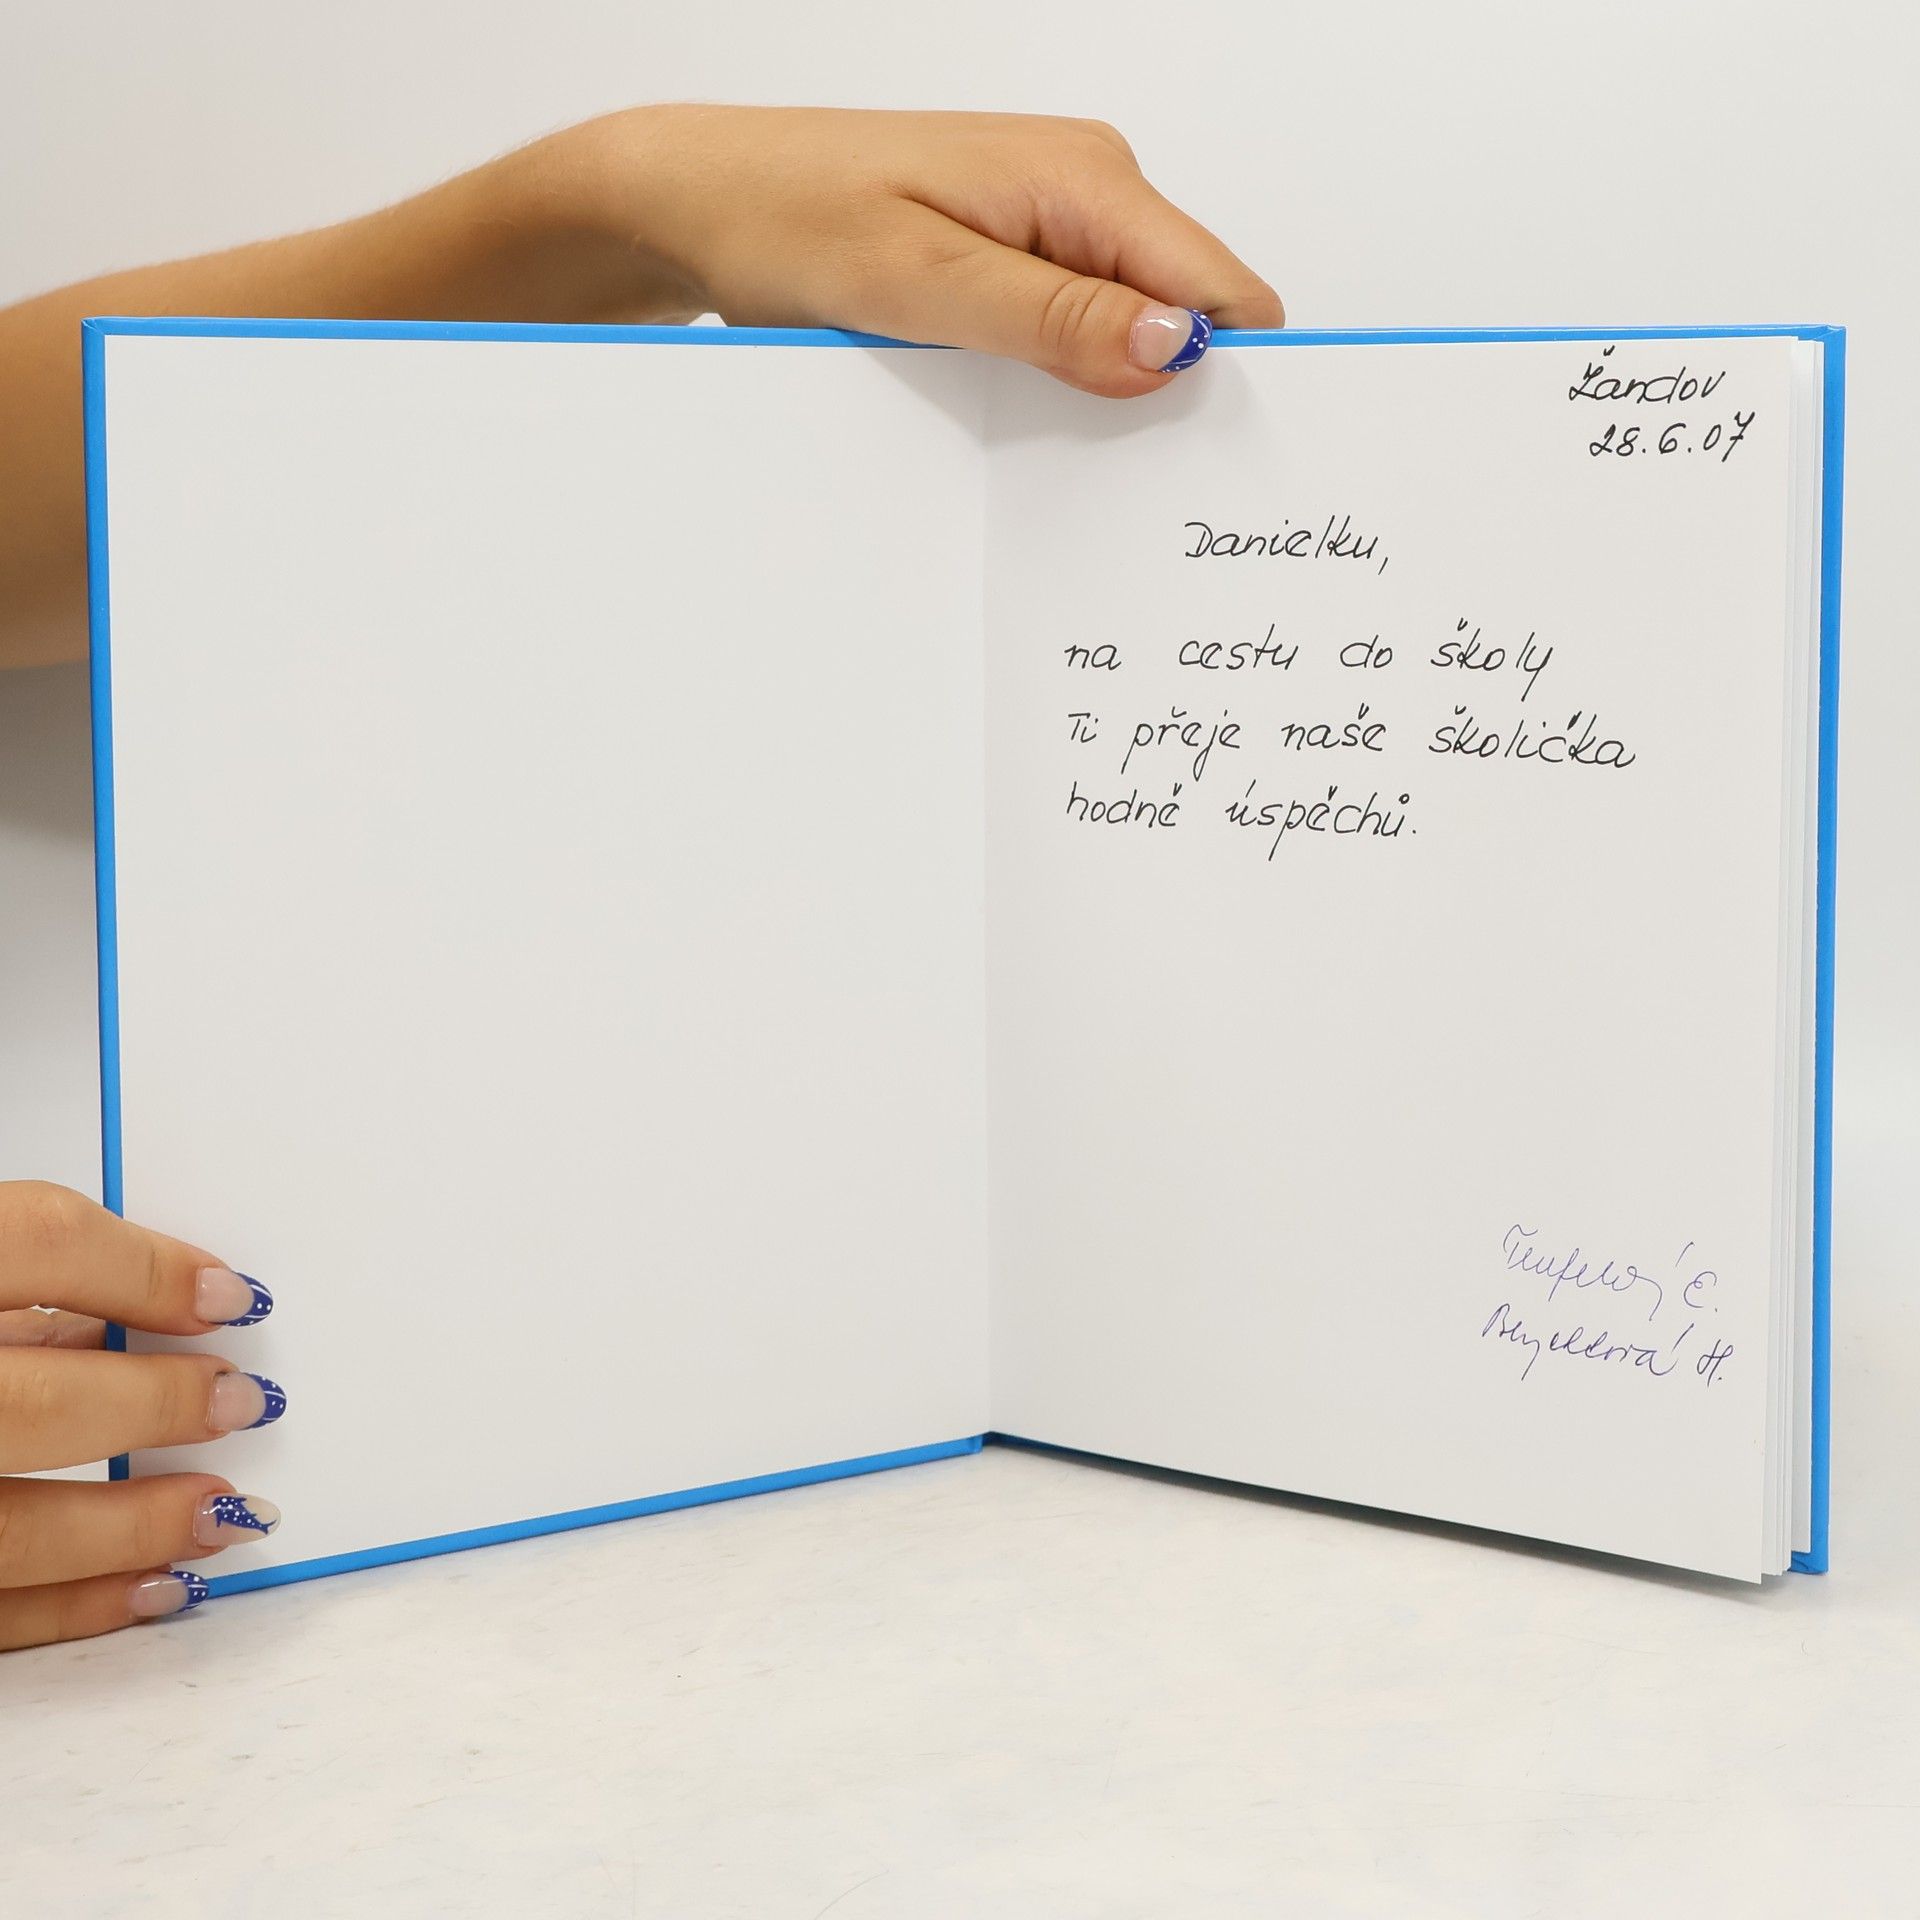 Žandov
28.6.07
Danielku,
na cestu do školy
Ti přeje naše školička
hodně úspěchů.
E.
H.